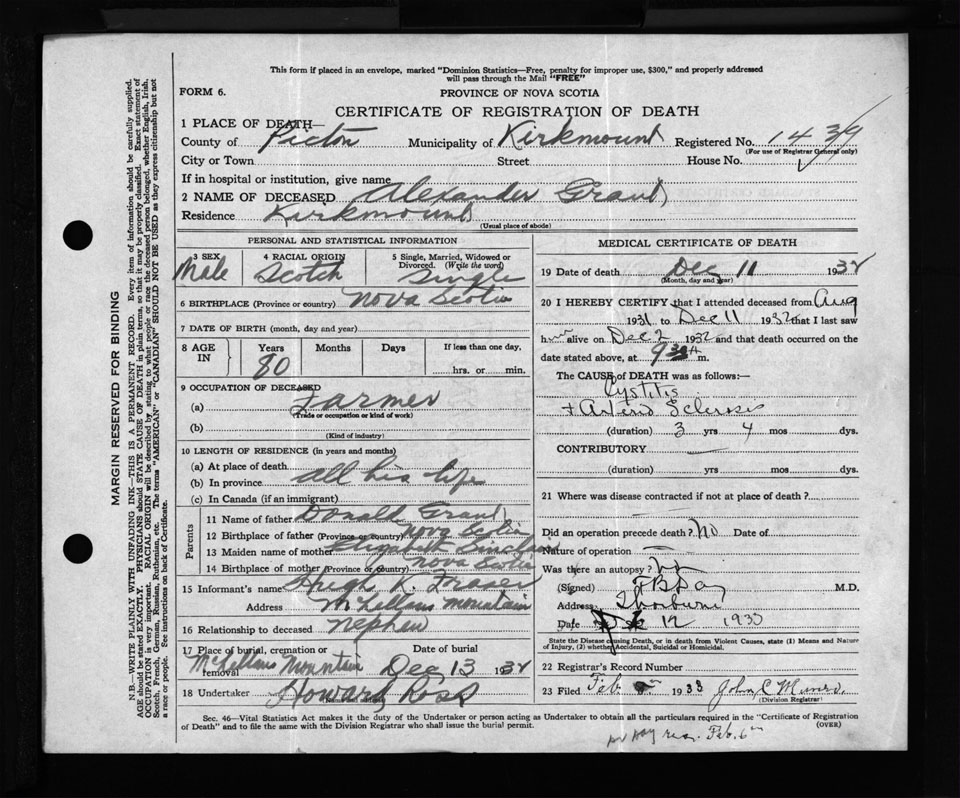 This form if placed in an envelope, marked "Dominion Statistics—Free, penalty for improper use, $300," and properly addressed
will pass through the Mail "FREE"
FORM 6.
PROVINCE OF NOVA SCOTIA
CERTIFICATE OF REGISTRATION OF DEATH
1 PLACE OF DEATH—
County of Picton Municipality of Kirkmount Registered No. 1439
(For use of Registrar General only)
City or Town Street House No.
If in hospital or institution, give name
2 NAME OF DECEASED Alexander Grant
Residence Kirkmount
(Usual place of abode)
PERSONAL AND STATISTICAL INFORMATION
3 SEX 4 RACIAL ORIGIN 5 Single, Married, Widowed or
Divorced. (Write the word)
Male Scotch Single
6 BIRTHPLACE (Province or country) Nova Scotia
7 DATE OF BIRTH (month, day and year)
8 AGE IN Years Months Days If less than one day,
80 hrs. or min.
9 OCCUPATION OF DECEASED
(a) Farmer
(Trade or occupation or kind of work)
(b)
(Kind of industry)
10 LENGTH OF RESIDENCE (in years and months)
(a) At place of death
(b) In province all his life
(c) In Canada (if an immigrant)
Parents
11 Name of father Donald Grant
12 Birthplace of father (Province or country) Nova Scotia
13 Maiden name of mother Elizabeth Sinclair
14 Birthplace of mother (Province or country) Nova Scotia
15 Informant's name Hugh K. Fraser
Address McLellans Mountain
16 Relationship to deceased nephew
17 Place of burial, cremation or removal Date of burial
McLellans Mountain Dec 13 1932
18 Undertaker Howard Ross
(Name and address)
MEDICAL CERTIFICATE OF DEATH
19 Date of death Dec 11 1932
(Month, day and year)
20 I HEREBY CERTIFY that I attended deceased from Aug
1931 to Dec 11 1932 that I last saw
him alive on Dec 2 1932 and that death occurred on the
date stated above, at 9 30 m.
The CAUSE of DEATH was as follows:—
Cystitis
+ Arterio Sclerosis
(duration) 3 yrs 4 mos dys.
CONTRIBUTORY
(duration) yrs mos dys.
21 Where was disease contracted if not at place of death?
Did an operation precede death? No Date of
Nature of operation
Was there an autopsy?
(Signed) M.D.
Address Thorburn
Date 12 1933
State the Disease causing Death, or in death from Violent Causes, state (1) Means and Nature
of Injury, (2) whether Accidental, Suicidal or Homicidal.
22 Registrar's Record Number
23 Filed Feb 1933 John C Munro
(Division Registrar)
Sec. 46—Vital Statistics Act makes it the duty of the Undertaker or person acting as Undertaker to obtain all the particulars required in the "Certificate of Registration
of Death" and to file the same with the Division Registrar who shall issue the burial permit.
(OVER)
Feb. 6th
MARGIN RESERVED FOR BINDING
N.B.—WRITE PLAINLY WITH UNFADING INK—THIS IS A PERMANENT RECORD. Every item of information should be carefully supplied.
AGE should be stated EXACTLY. PHYSICIANS should STATE CAUSE OF DEATH in plain terms, so that it may be properly classified. Exact statement of
OCCUPATION is very important. RACIAL ORIGIN will be described by stating to what people or race the deceased person belonged, whether English, Irish,
Scotch, French, German, Russian, Ruthenian, etc. The terms "AMERICAN" or "CANADIAN" SHOULD NOT BE USED as they express citizenship but not
a race or people. See instructions on back of Certificate.